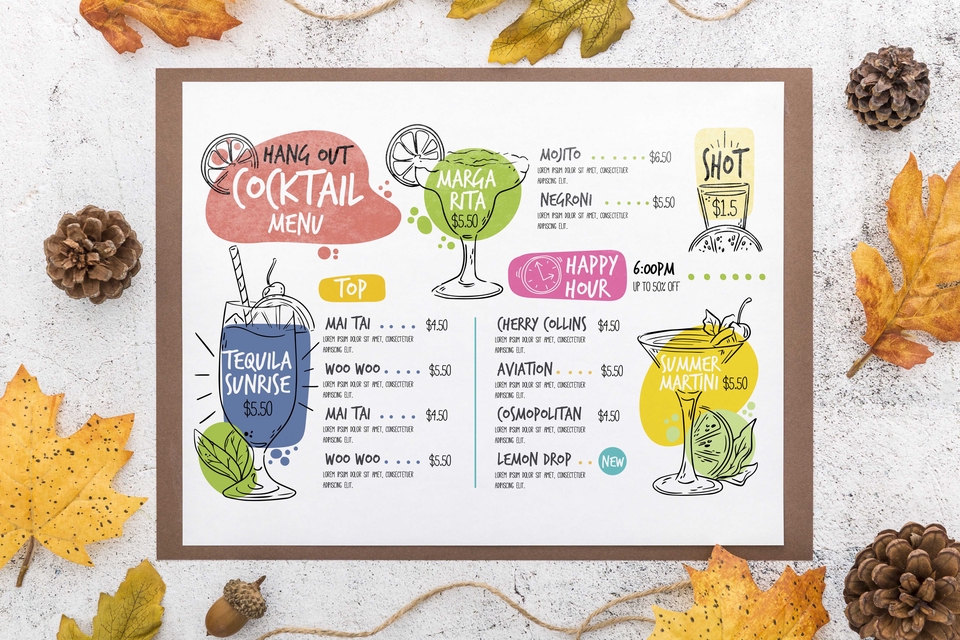 HANG OUT
COCKTAIL
MENU
MARGA
RITA
$5.50
MOJITO $6.50
LOREM IPSUM DOLOR SIT AMET, CONSECTETUER
ADIPISCING ELIT.
NEGRONI $5.50
LOREM IPSUM DOLOR SIT AMET, CONSECTETUER
ADIPISCING ELIT.
SHOT
$1.5
HAPPY
HOUR
6:00PM
UP TO 50% OFF
TOP
TEQUILA
SUNRISE
$5.50
MAI TAI $4.50
LOREM IPSUM DOLOR SIT AMET, CONSECTETUER
ADIPISCING ELIT.
WOO WOO $5.50
LOREM IPSUM DOLOR SIT AMET, CONSECTETUER
ADIPISCING ELIT.
MAI TAI $4.50
LOREM IPSUM DOLOR SIT AMET, CONSECTETUER
ADIPISCING ELIT.
WOO WOO $5.50
LOREM IPSUM DOLOR SIT AMET, CONSECTETUER
ADIPISCING ELIT.
CHERRY COLLINS $4.50
LOREM IPSUM DOLOR SIT AMET, CONSECTETUER
ADIPISCING ELIT.
AVIATION $5.50
LOREM IPSUM DOLOR SIT AMET, CONSECTETUER
ADIPISCING ELIT.
COSMOPOLITAN $4.50
LOREM IPSUM DOLOR SIT AMET, CONSECTETUER
ADIPISCING ELIT.
LEMON DROP NEW
LOREM IPSUM DOLOR SIT AMET, CONSECTETUER
ADIPISCING ELIT.
SUMMER
MARTINI $5.50